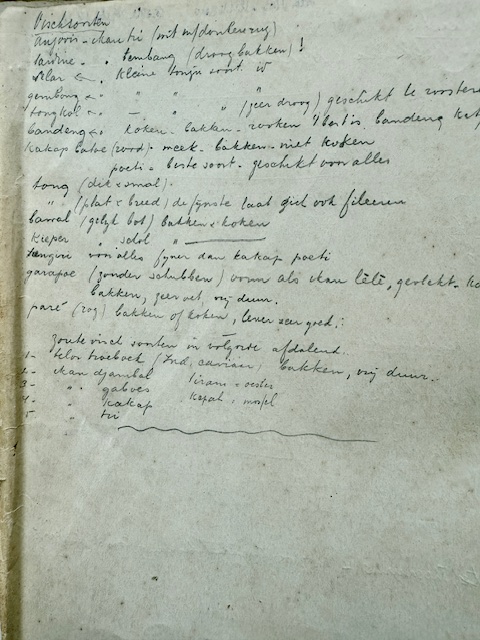 Vischsoorten
anjovis - ikan tri (wit m/donkere rug)
sardine - " tembang (droog bakken)!
selar " kleine tonijn soort
gembong " " "
tongkol " - " " (zeer droog) geschikt te roosteren
bandeng " koken - bakken - rooken 't best is bandeng
kakap batoe (rood) - meek - bakken - niet koken
poeti = beste soort - geschikt voor alles
tong (dik & smal).
" (plat & breed) de fijnste laat zich ook fileeren
(gelijk bot) bakken & koken
kieper " schol "
tengiri voor alles fijner dan kakap poeti
garapoe (zonder schubben) vorm als ikan lélé, gerookt -
bakken, zeer vet, vrij duur.
paré (rog) bakken of koken, lever zeer goed!
zoute visch soorten in volgorde afdalend.
1- telor troeboek (Ind. caviaar) bakken, vrij duur.
2- ikan djambal tiram = oester
3- " gaboes kepah = mossel
4- " kakap
5 " tri